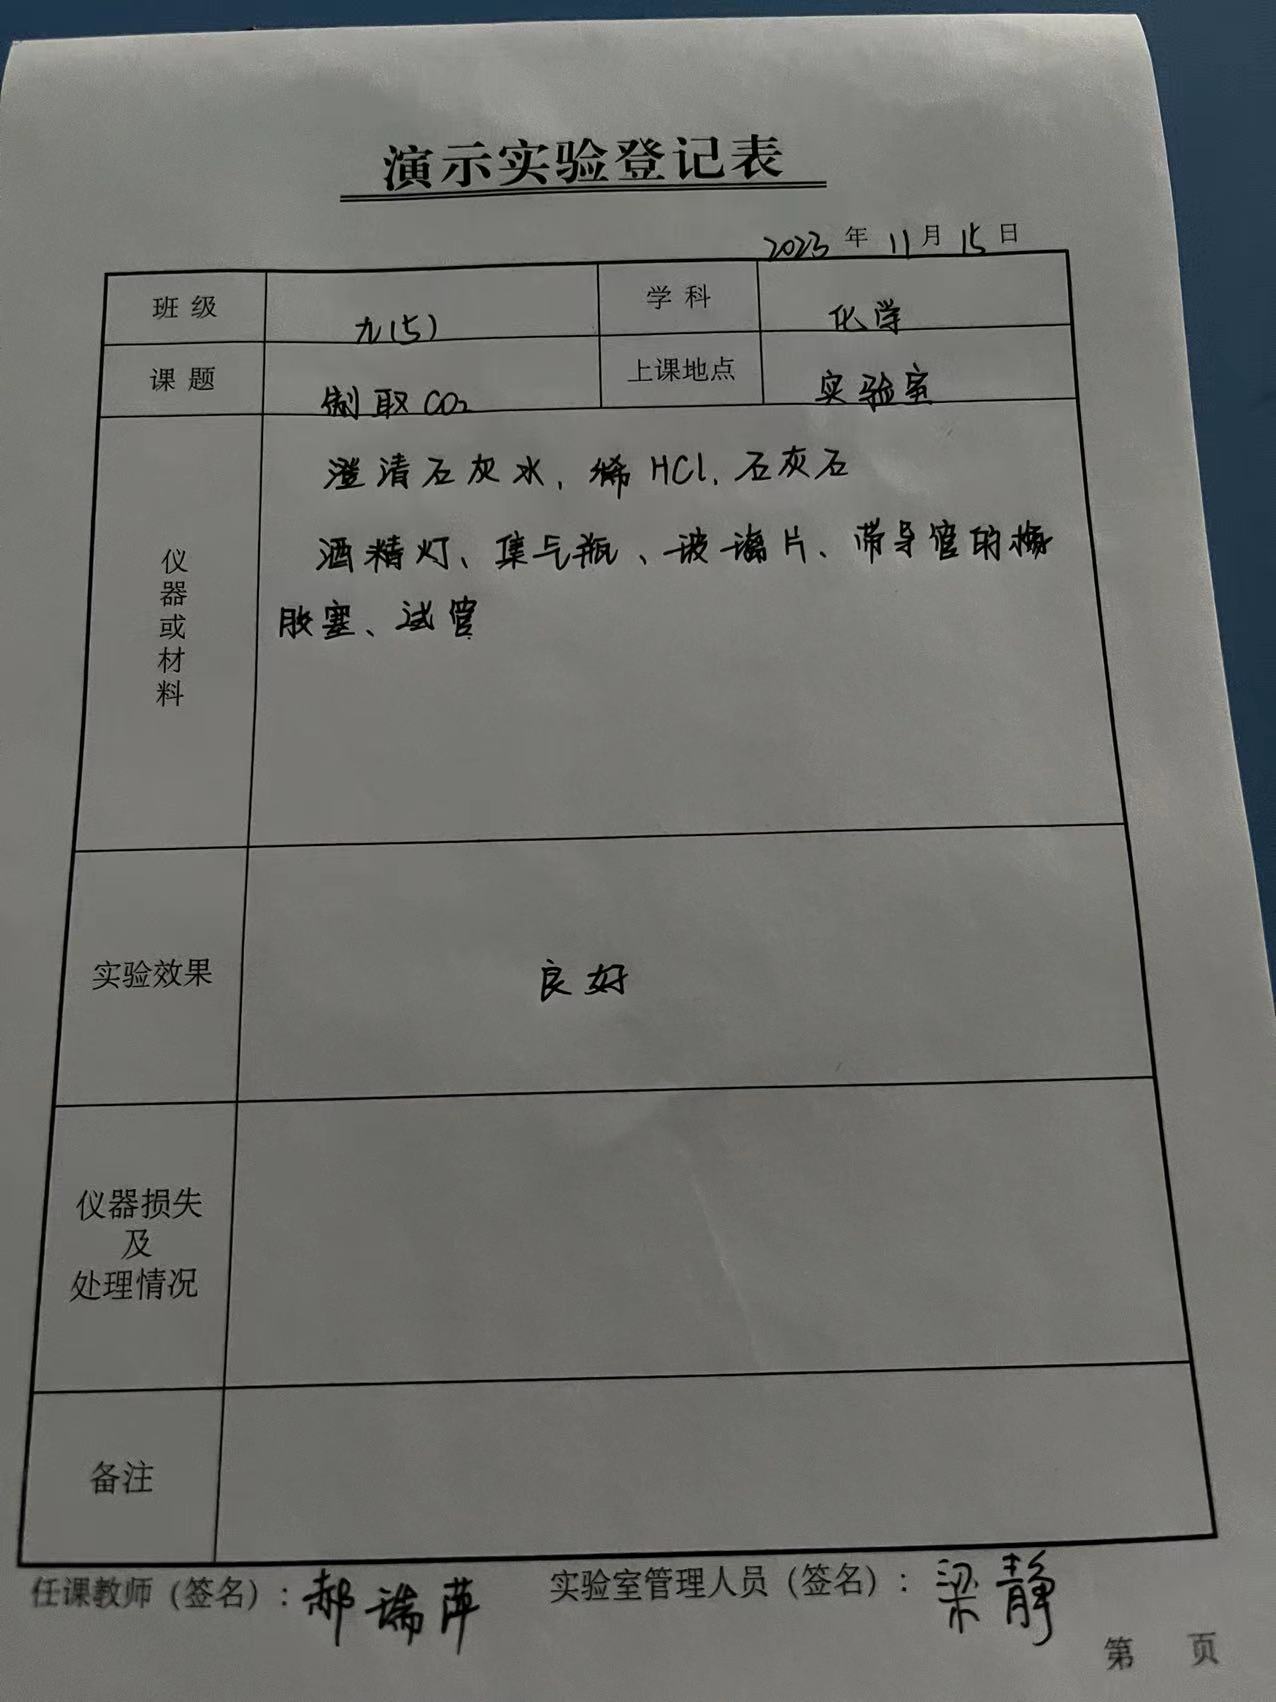 演示实验登记表
2023 年 11 月 15 日
班级 九(5) 学科 化学
课题 制取CO₂ 上课地点 实验室
仪器或材料
澄清石灰水、稀HCl、石灰石
酒精灯、集气瓶、玻璃片、带导管的橡
胶塞、试管
实验效果 良好
仪器损失
及
处理情况
备注
任课教师（签名）：郝瑞萍 实验室管理人员（签名）：梁静
第 页